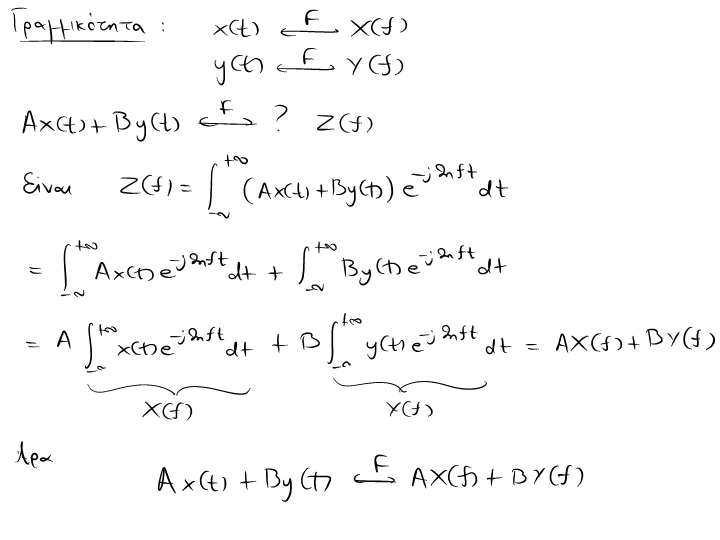 Γραμμικότητα : x(t) ⟷ F X(f)
y(t) ⟷ F Y(f)
Ax(t) + By(t) ⟷ F ? Z(f)
Είναι Z(f) = ∫_{-∞}^{+∞} (Ax(t) + By(t)) e^{-j2πft} dt
= ∫_{-∞}^{+∞} Ax(t) e^{-j2πft} dt + ∫_{-∞}^{+∞} By(t) e^{-j2πft} dt
= A ∫_{-∞}^{+∞} x(t) e^{-j2πft} dt + B ∫_{-∞}^{+∞} y(t) e^{-j2πft} dt = AX(f) + BY(f)
X(f) Y(f)
Άρα
Ax(t) + By(t) ⟷ F AX(f) + BY(f)